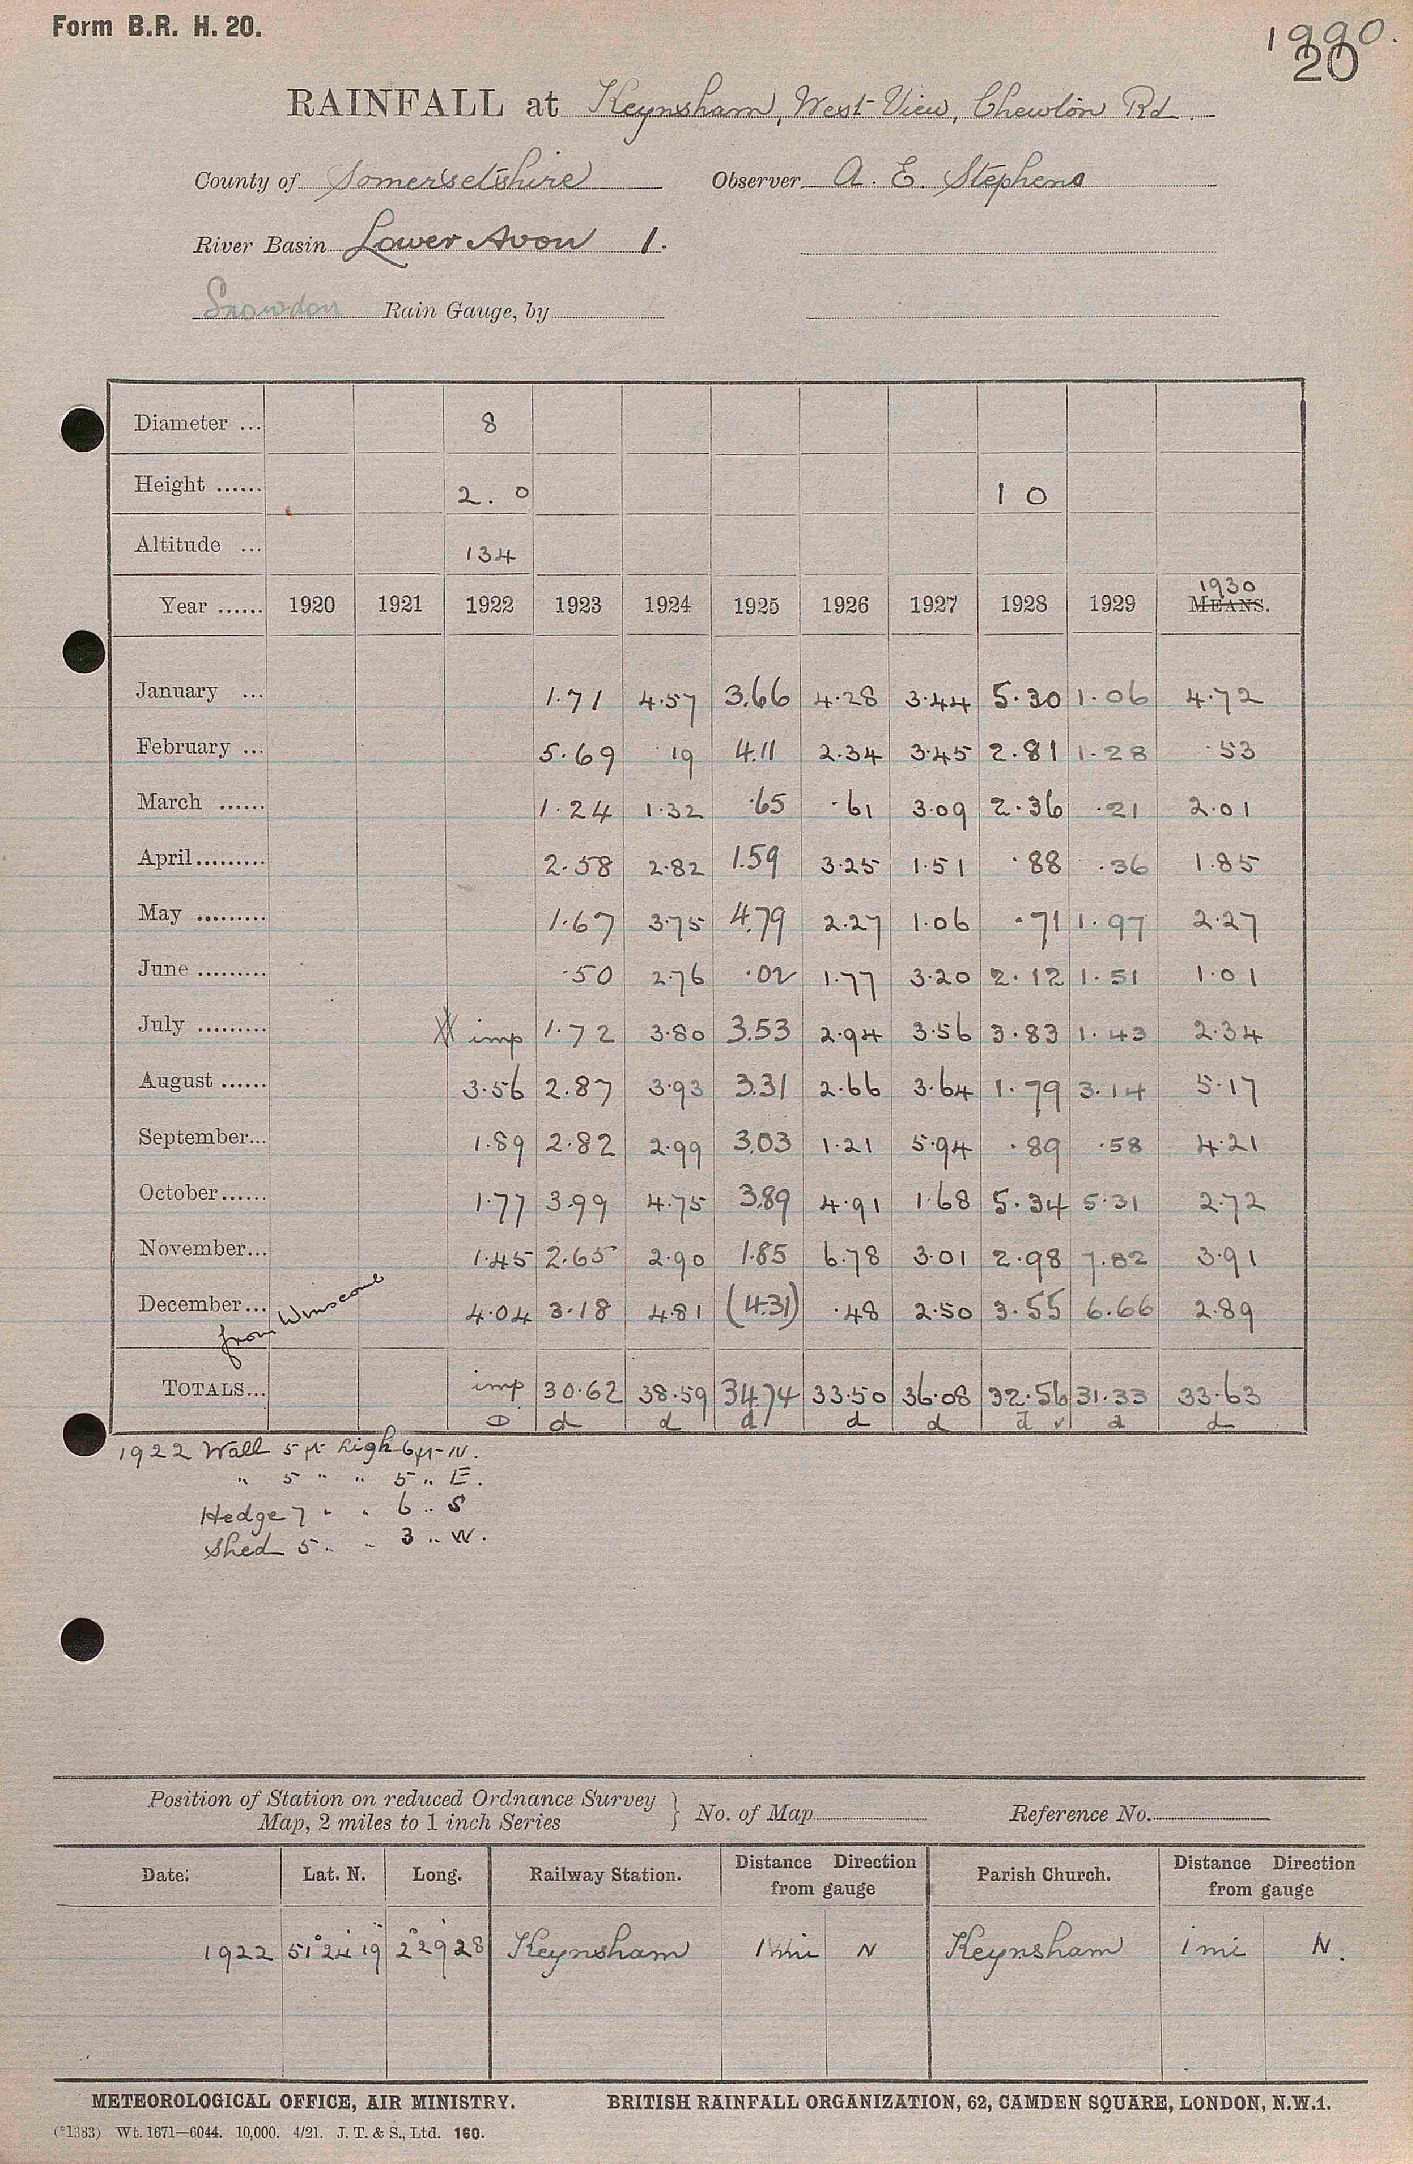 Form B.R. H. 20.
1990.
20
RAINFALL at Keynsham, West View, Chewton Rd.
County of Somersetshire Observer A. E. Stephens
River Basin Lower Avon 1.
Snowdon Rain Gauge, by
Diameter ... 8
Height ...... 2. 0 1 0
Altitude ... 134
1930
Year ...... 1920 1921 1922 1923 1924 1925 1926 1927 1928 1929 MEANS.
January ... 1.71 4.57 3.66 4.28 3.44 5.30 1.06 4.72
February ... 5.69 .19 4.11 2.34 3.45 2.81 1.28 .53
March ...... 1.24 1.32 .65 .61 3.09 2.36 .21 2.01
April......... 2.58 2.82 1.59 3.25 1.51 .88 .36 1.85
May ......... 1.67 3.75 4.79 2.27 1.06 .71 1.97 2.27
June ......... .50 2.76 .02 1.77 3.20 2.12 1.51 1.01
July ......... imp 1.72 3.80 3.53 2.94 3.56 3.83 1.43 2.34
August ...... 3.56 2.87 3.93 3.31 2.66 3.64 1.79 3.14 5.17
September... 1.89 2.82 2.99 3.03 1.21 5.94 .89 .58 4.21
October...... 1.77 3.99 4.75 3.89 4.91 1.68 5.34 5.31 2.72
November... 1.45 2.65 2.90 1.85 6.78 3.01 2.98 7.82 3.91
December... 4.04 3.18 4.81 (4.31) .48 2.50 3.55 6.66 2.89
from Winscombe
TOTALS... imp 30.62 38.59 34.74 33.50 36.08 32.56 31.33 33.63
D d d d d d d v d d
1922 Wall 5 ft high 6 ft N.
" 5 " " 5 " E.
Hedge 7 " " 6 " S
Shed 5 " " 3 " W.
Position of Station on reduced Ordnance Survey
Map, 2 miles to 1 inch Series } No. of Map Reference No.
Date: Lat. N. Long. Railway Station. Distance Direction from gauge Parish Church. Distance Direction from gauge
1922 51° 24' 19" 2° 29' 28 Keynsham 1 mi N Keynsham 1 mi N.
METEOROLOGICAL OFFICE, AIR MINISTRY. BRITISH RAINFALL ORGANIZATION, 62, CAMDEN SQUARE, LONDON, N.W.1.
(*1383) Wt. 1671—6044. 10,000. 4/21. J. T. & S., Ltd. 160.